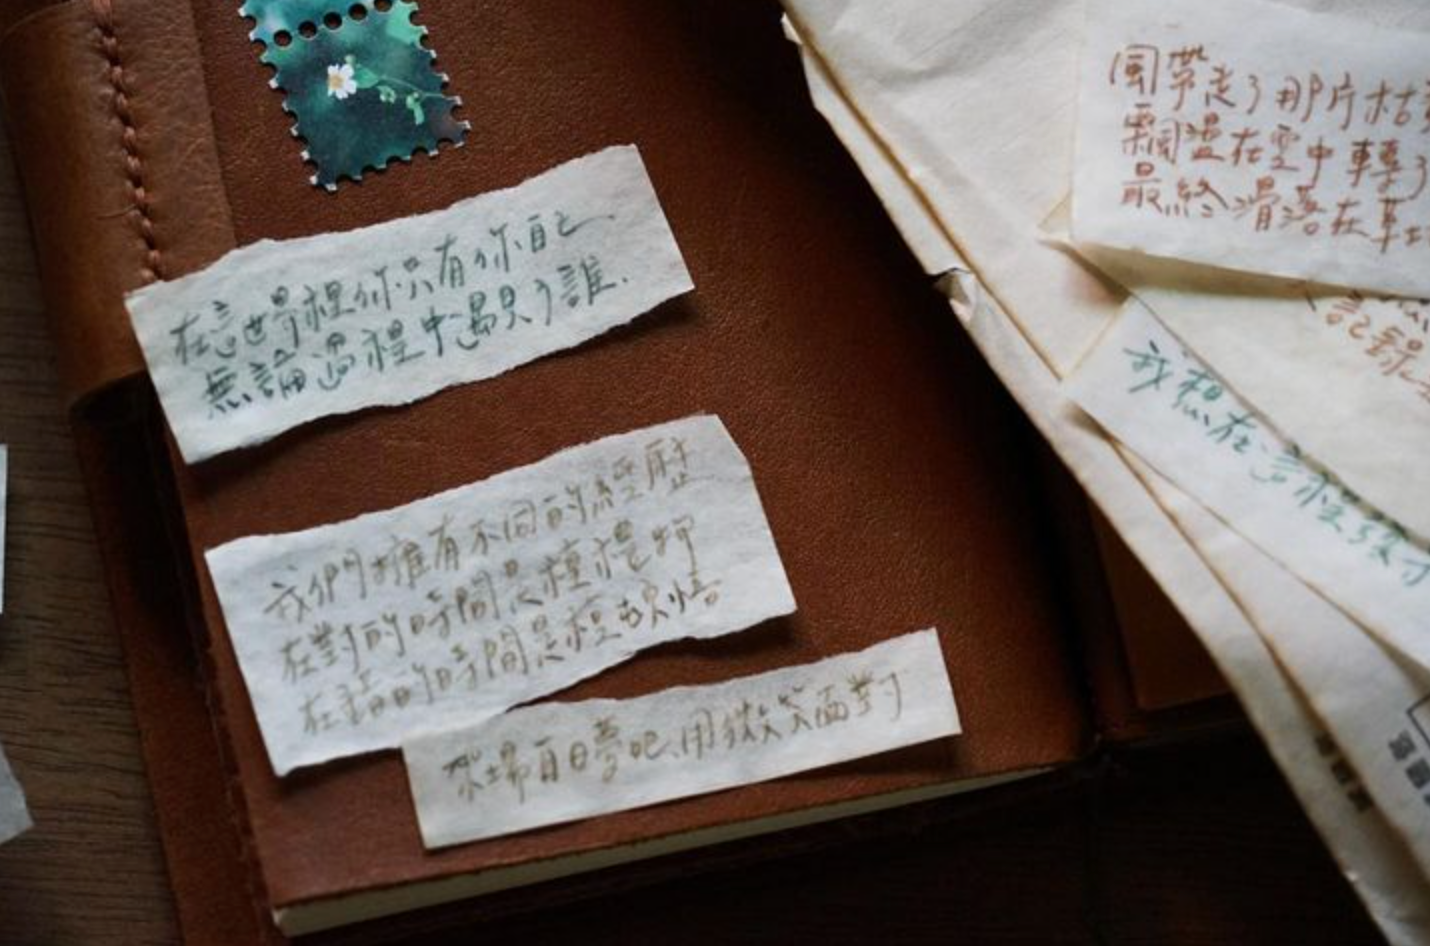 在這世界裡你只有你自己
無論過程中遇見了誰.
我們擁有不同的經歷
在對的時間是種提押
在錯的時間是種領悟
架場白日夢吧,用微笑面對
風帶走了那片枯
飄盪在空中轉了
最終滑落在草地
記錄
我想在這裡發